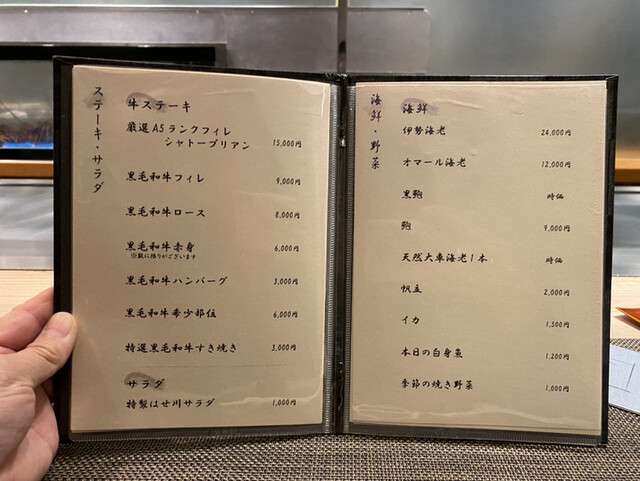 ステーキ・サラダ
牛ステーキ
厳選A5ランクフィレ
シャトーブリアン 15,000円
黒毛和牛フィレ 9,000円
黒毛和牛ロース 8,000円
黒毛和牛赤身 6,000円
※数に限りがございます
黒毛和牛ハンバーグ 3,000円
黒毛和牛希少部位 6,000円
特選黒毛和牛すき焼き 3,000円
サラダ
特製はせ川サラダ 1,000円
海鮮・野菜
海鮮
伊勢海老 24,000円
オマール海老 12,000円
黒鮑 時価
鮑 9,000円
天然大車海老1本 時価
帆立 2,000円
イカ 1,500円
本日の白身魚 1,200円
季節の焼き野菜 1,000円